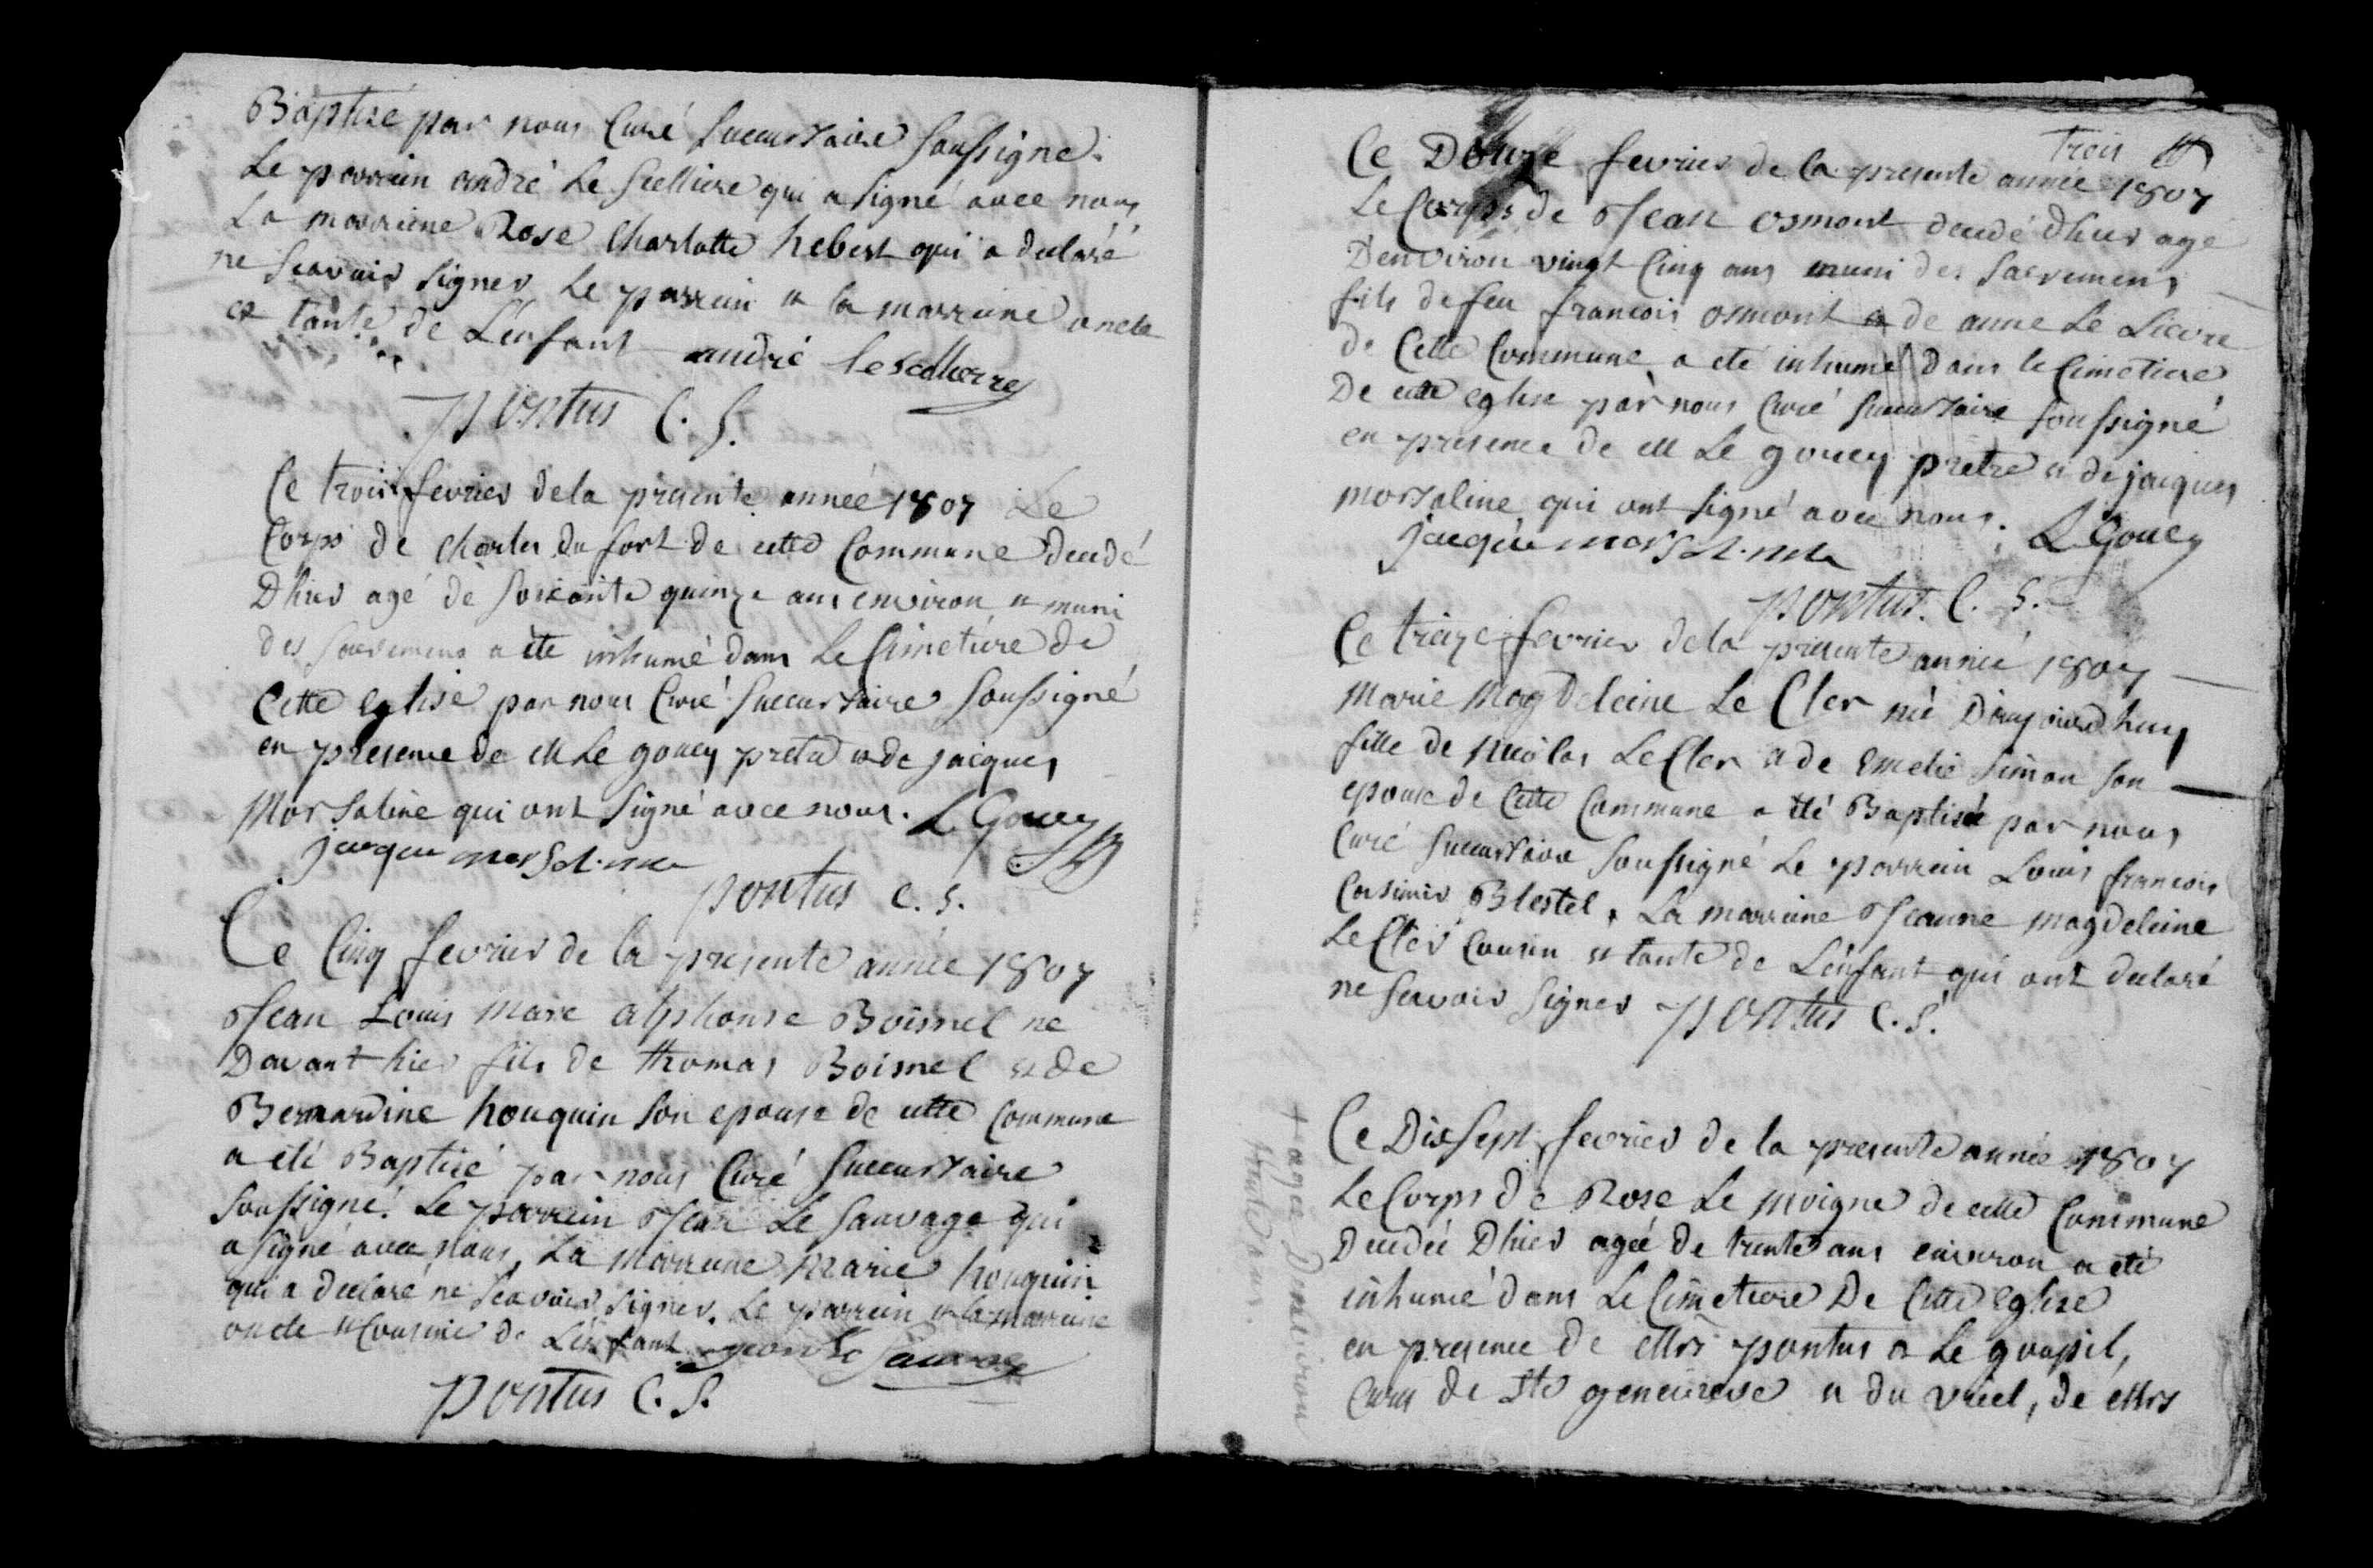 Baptisé par nous Curé Succursaire Soussigné.
Le parrain andré Le Sellière qui a signé avec nous,
La marrieine Rose Charlotte hebert qui a declaré
ne Scavoir signer Le parrein et la marreine oncle
et tante de L'enfant andré le scellierre
pontus C. S.
Ce trois fevrier de la presente année 1807 Le
Corps de Charles du fort de cette Commune decedé
Dhier agé de soixante quinze ans environ et muni
des sacremens a eté inhumé dans Le Cimetiere de
Cette Eglise par nous Curé Succursaire Soussigné
en presence de M Le gouey pretre et de jacques
Morsaline qui ont signé avec nous. L Gouey
jacque morsaline
pontus C. S.
Ce Cinq fevrier de la presente année 1807
Jean Louis Marc alphonse Boisnel né
Davant hier fils de thomas Boisnel et de
Bernardine houquin son epouse de cette Commune
a été Baptisé par nous Curé Succursaire
Soussigné. Le parrein Jean Le Sauvage qui
a signé avec nous, La Marreine Marie houquin
qui a declaré ne Scavoir signer. Le parrein et la marreine
oncle et Cousine de L'enfant. jean le sauvage
pontus C. S.
trois
Ce Douze fevrier de la presente année 1807
Le Corps de Jean osmont decedé Dhier agé
Denviron vingt Cinq ans muni des Sacremens
fils de feu francois osmont et de anne Le Lievre
de Cette Commune a eté inhumé Dans le Cimetiere
De cette eglise par nous Curé Succursaire Soussigné
en presence de M Le gouey pretre et de jacques
morsaline qui ont signé avec nous. L Gouey
jacque morsaline
pontus. C. S.
Ce treize fevrier de la presente année 1807
Marie Magdeleine Le Cler né Daujourdhuy
fille de Nicolas Le Cler et de Emelie Simon son
epouse de Cette Commune a été Baptisée par nous
Curé Succursaire Soussigné Le parrein Louis francois
Casimir Blestel, La marreine Jeanne magdeleine
Le Cler Cousin et tante de L'enfant qui ont declaré
ne Scavoir signer pontus C. S.
Ce Dix sept fevrier de la presente année 1807
Le Corps de Rose Le moigne de cette Commune
Decedée Dhier agée de trente ans environ a eté
inhumé dans Le Cimetiere De Cette Eglise
en presence de Mrs pontus et Le goupil,
Curés de Ste genevieve et du vicel, de Mrs
+ agée Denviron
trente ans.